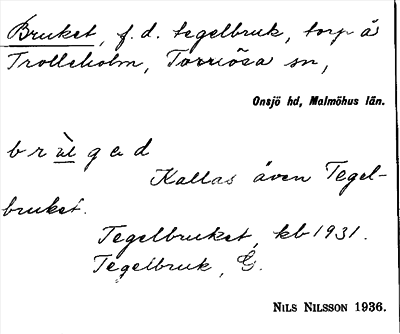 Bruket, f.d. tegelbruk, torp å
Trolleholm, Torrlösa sn,
Onsjö hd, Malmöhus län.
Kallas även Tegel-
bruket.
Tegelbruket, kb 1931.
Tegelbruk, G.
NILS NILSSON 1936.